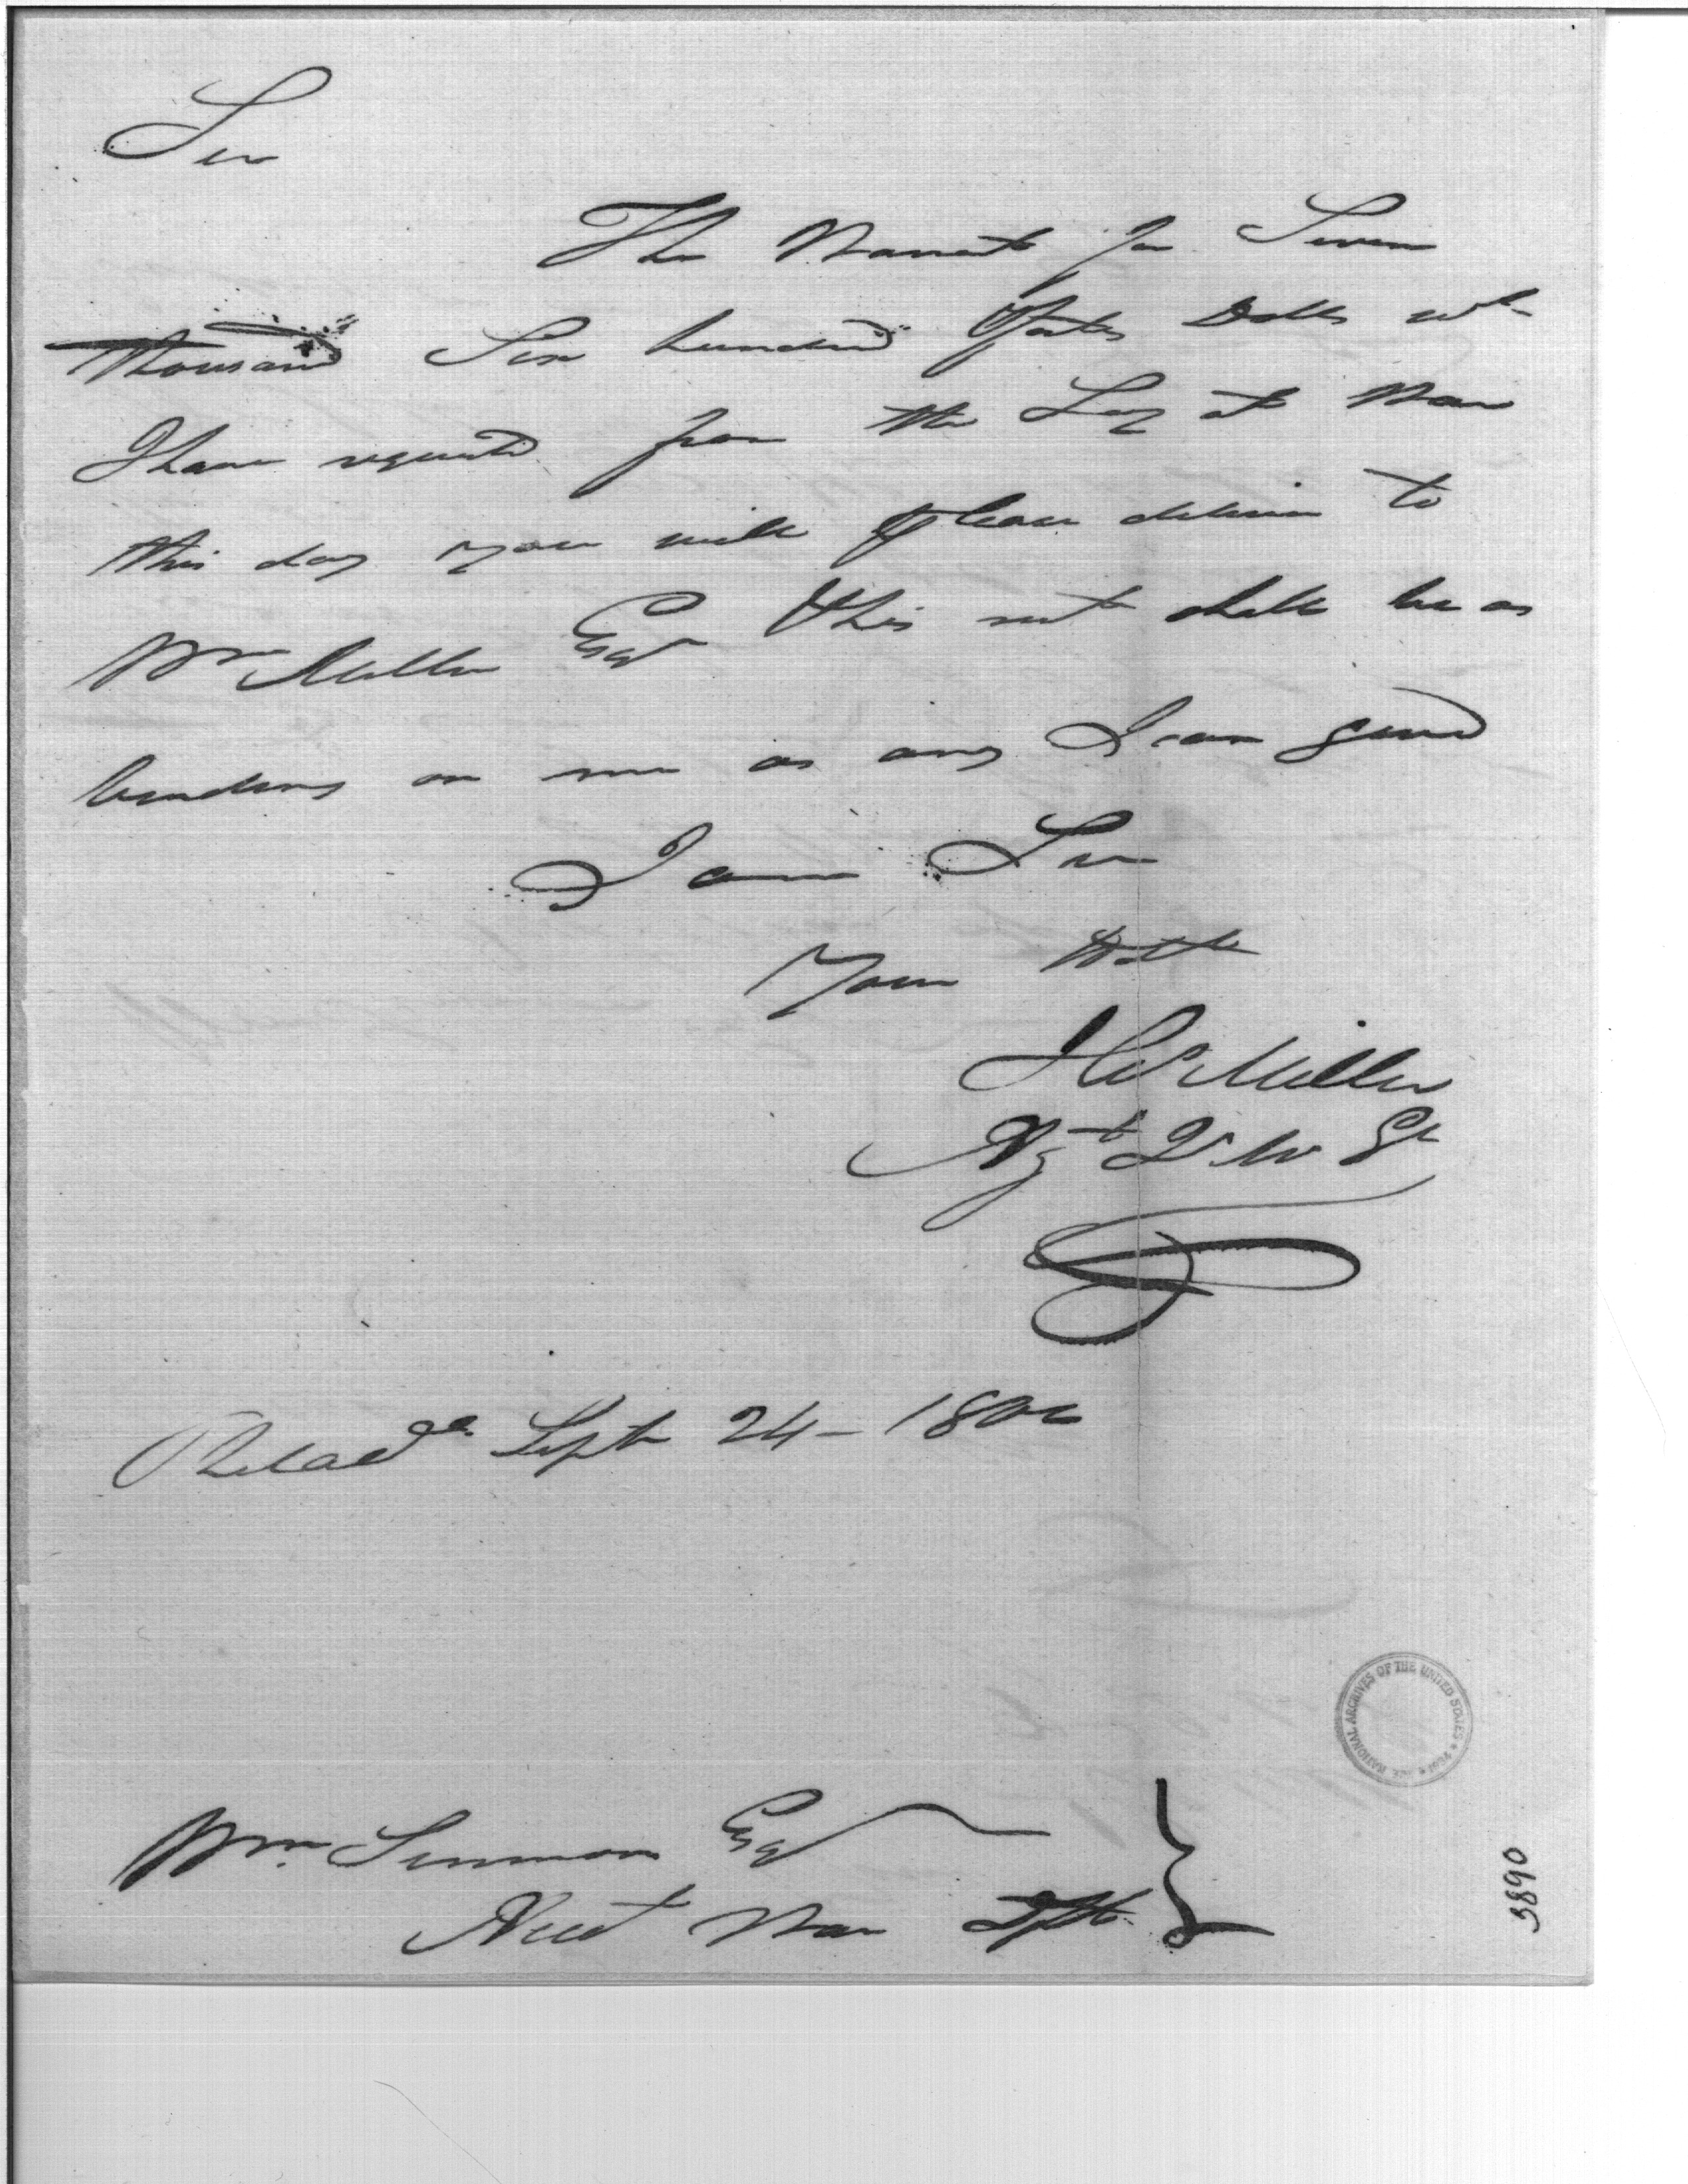 Sir
The Warrant for Seven
thousand Six hundred & forty Dolls wh
I have requested from the Secy at War
this day you will please deliver to
Wm Miller Esqr this rect shall be as
binding on me as any I can send
I am Sir
Your
H Miller
Agt
Philada Septr 24 - 1800
Wm Simmons Esqr
Acct War Dpt.
NATIONAL ARCHIVES OF THE UNITED STATES
3890